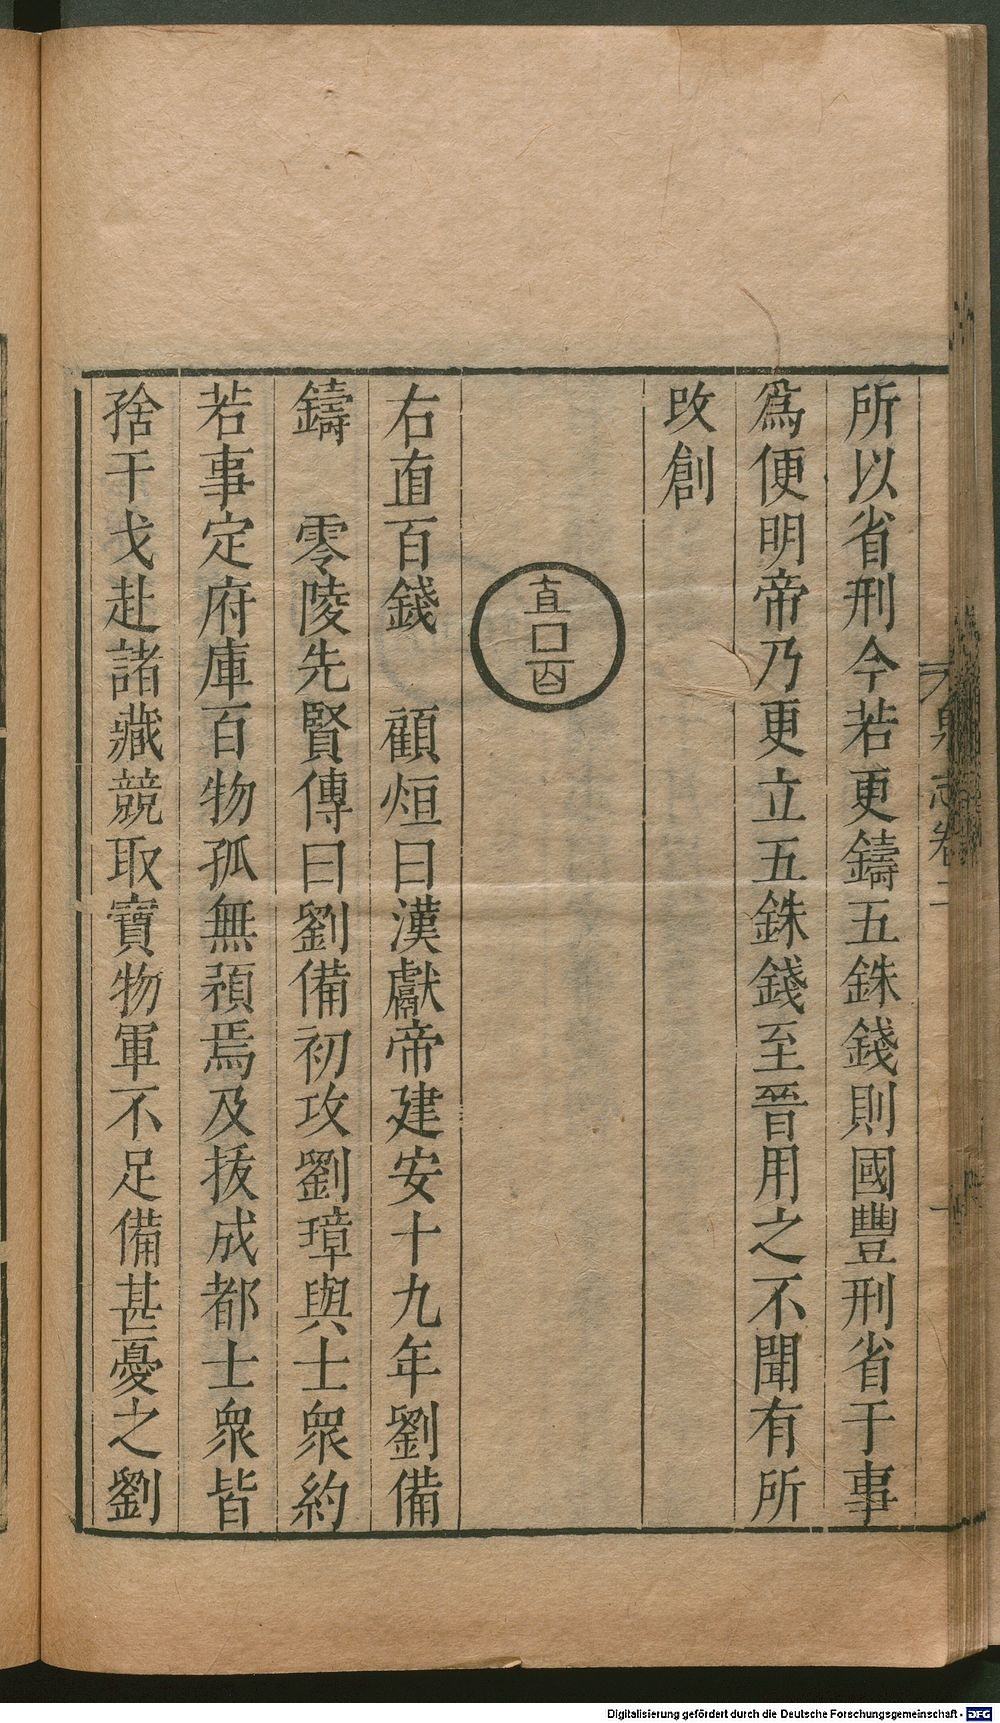 所以省刑今若更鑄五銖錢則國豐刑省于事
爲便明帝乃更立五銖錢至晉用之不聞有所
改創
直百
右直百錢 顧烜曰漢獻帝建安十九年劉備
鑄 零陵先賢傳曰劉備初攻劉璋與士衆約
若事定府庫百物孤無預焉及拔成都士衆皆
捨干戈赴諸藏競取寶物軍不足備甚憂之劉
志卷二
Digitalisierung gefördert durch die Deutsche Forschungsgemeinschaft - DFG